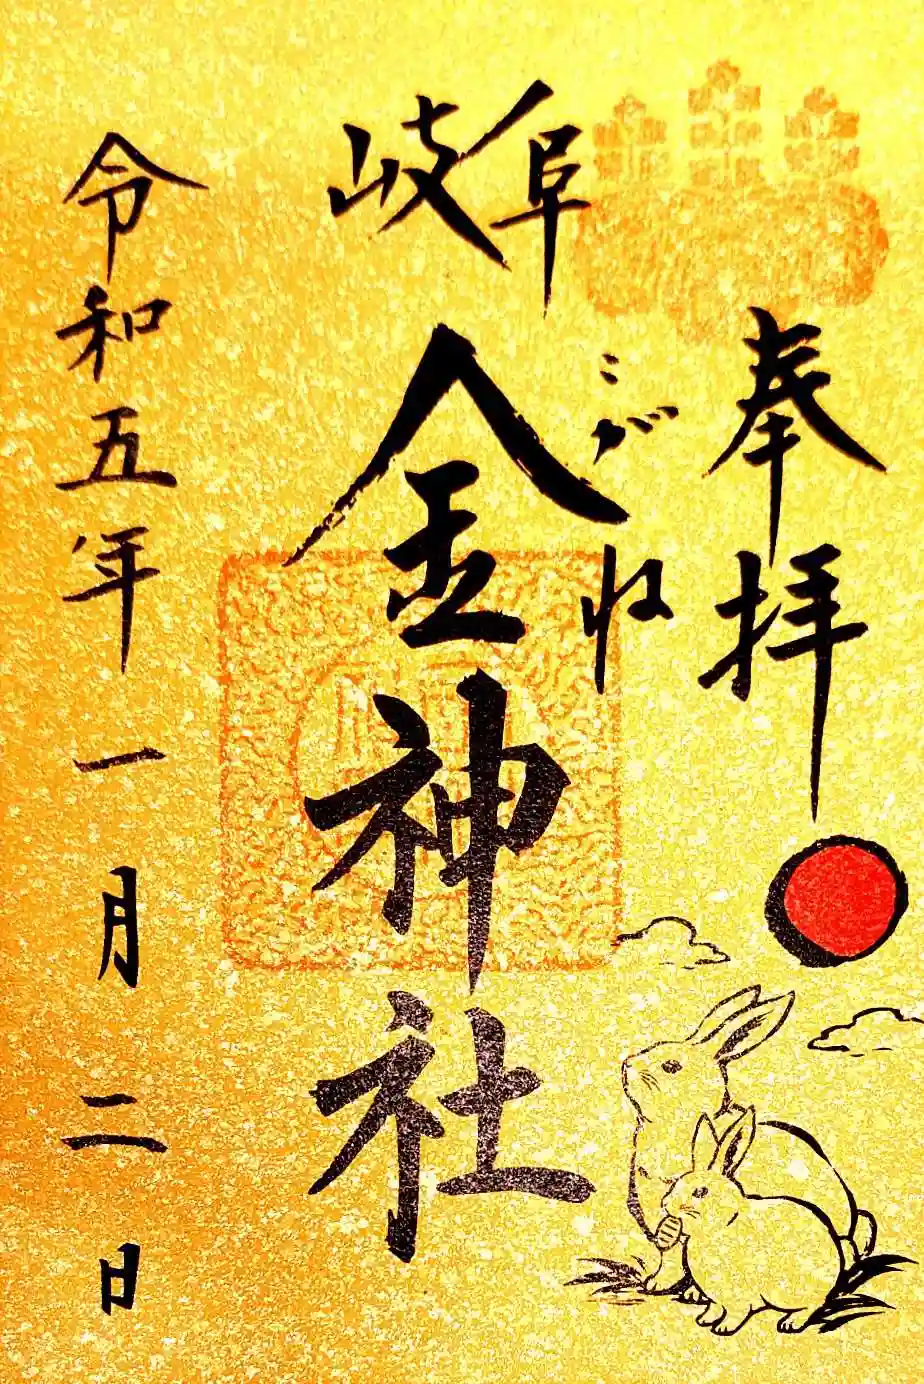 奉拝
こがね
岐阜
金神社
令和五年一月二日